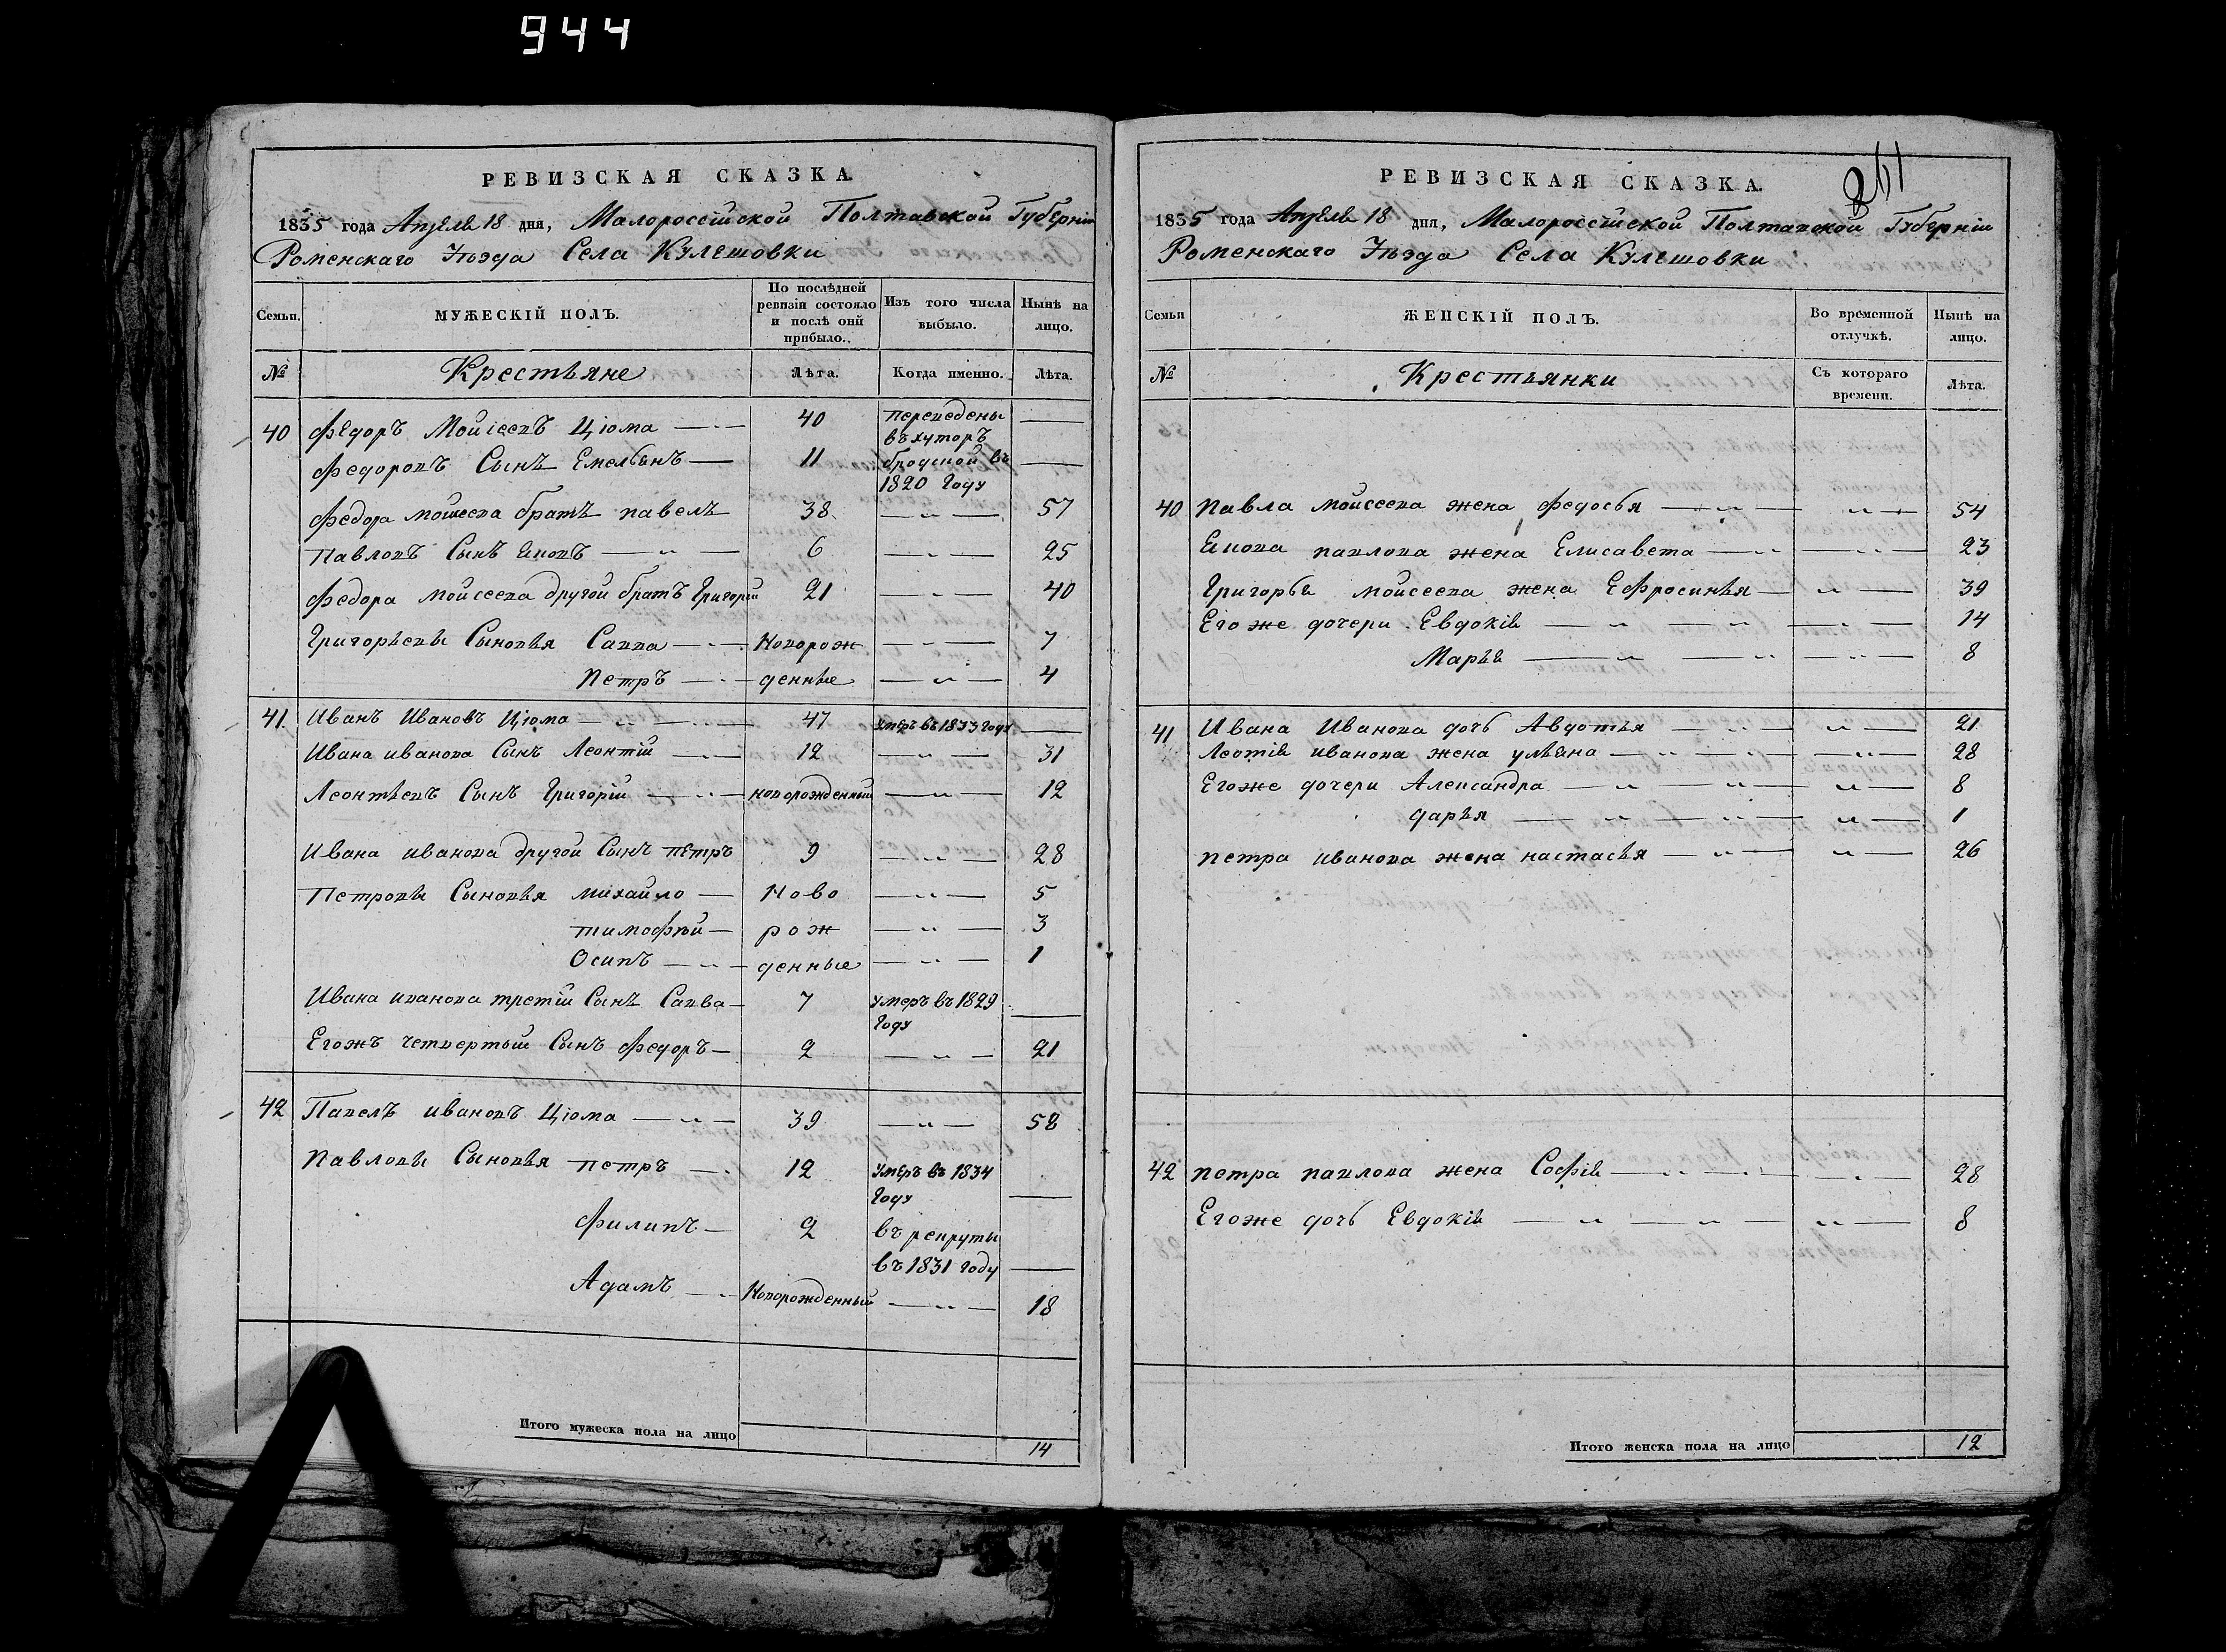 944
РЕВИЗСКАЯ СКАЗКА.
1835 года Апреля 18 дня, Малороссійской Полтавской Губерніи
Роменскаго Уѣзда Села Кулешовки
Семьи.
МУЖЕСКІЙ ПОЛЪ.
По послѣдней ревизіи состояло и послѣ оной прибыло.
Изъ того числа выбыло.
Нынѣ на лицо.
№
Крестьяне
Лѣта.
Когда именно.
Лѣта.
40 Федоръ Мойсеевъ Цюма 40 переведены въ хуторъ
Федоровъ Сынъ Емельянъ 11 въ 1820 Году
Федора мойсеева братъ павелъ 38 57
Павловъ Сынъ 6 25
Федора мойсеева другой братъ Григорій 21 40
Григорьевы Сыновья Савва Новорож 7
Петръ денные 4
41 Иванъ Ивановъ Цюма 47 умеръ въ 1833 году
Ивана иванова Сынъ Леонтій 12 31
Леонтьевъ Сынъ Григорій новорожденный 12
Ивана иванова другой Сынъ петръ 9 28
Петровы Сыновья михайло Ново 5
тимофѣй рож 3
Осипъ денные 1
Ивана иванова третій Сынъ Савва 7 умеръ въ 1829 Году
Егожъ четвертый Сынъ Федоръ 2 21
42 Павелъ ивановъ Цюма 39 58
Павловы Сыновья петръ 12 умеръ въ 1834 Году
Филипъ 2 въ рекруты въ 1831 году
Адамъ Новорожденный 18
Итого мужеска пола на лицо 14
261
РЕВИЗСКАЯ СКАЗКА.
1835 года Апреля 18 дня, Малороссійской Полтавской Губерніи
Роменскаго Уѣзда Села Кулешовки
Семьи
ЖЕНСКІЙ ПОЛЪ.
Во временной отлучкѣ.
Нынѣ на лицо.
№
Крестьянки
Съ котораго времени.
Лѣта.
40 Павла мойсеева жена федосья 54
павлова жена Елисавета 23
Григорья мойсеева жена Ефросинья 39
Его же дочери Евдокія 14
Марья 8
41 Ивана Иванова дочь Авдотья 21
Леотія иванова жена ульяна 28
Егоже дочери Александра 8
дарья 1
петра иванова жена настасья 26
42 петра павлова жена Софія 28
Егоже дочь Евдокія 8
Итого женска пола на лицо 12